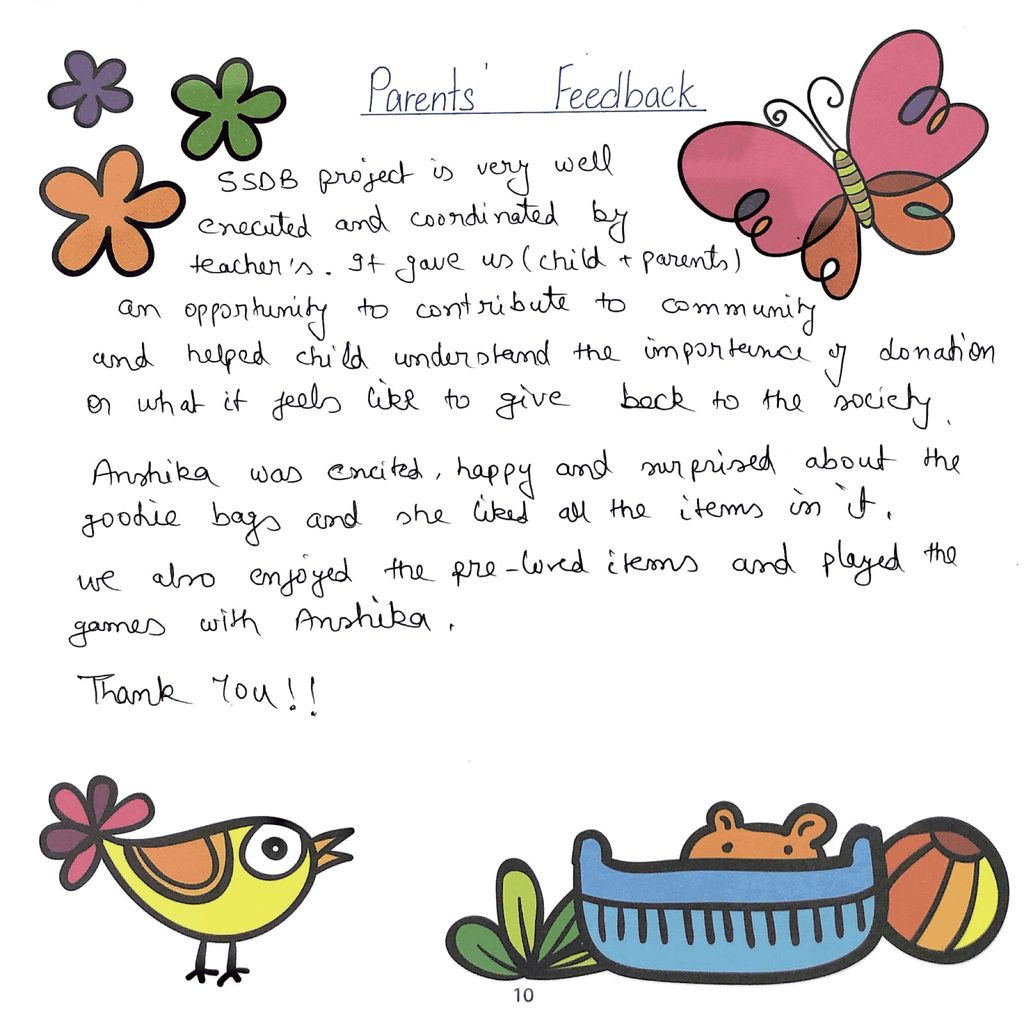 Parents' Feedback
SSDB project is very well
executed and coordinated by
teacher's. It gave us (child + parents)
an opportunity to contribute to community
and helped child understand the importance of donation
or what it feels like to give back to the society.
Anshika was excited, happy and surprised about the
goodie bags and she liked all the items in it.
we also enjoyed the pre-loved items and played the
games with Anshika.
Thank You!!
10